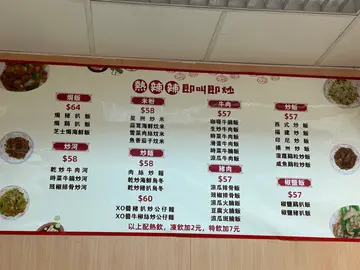 熱辣辣即叫即炒
焗飯
$64
焗豬扒飯
焗雞扒飯
芝士焗海鮮飯
炒河
$58
乾炒牛肉河
時菜牛肉炒河
豉椒排骨炒河
米粉
$58
星洲炒米
蒜茸海鮮炒米
雪菜肉絲炒米
魚香茄子炆米
炒麵
$58
肉絲炒麵
乾炒海鮮烏冬
乾炒豬扒烏冬
$60
XO醬豬扒炒公仔麵
XO醬牛柳絲炒公仔麵
牛肉
$57
咖喱牛腩飯
生炒牛肉飯
時菜牛肉飯
涼瓜牛肉飯
豬肉
$57
涼瓜排骨飯
豉椒排骨飯
豆腐火腩飯
涼瓜火腩飯
炒飯
$57
西式炒飯
福建炒飯
印尼炒飯
揚州炒飯
鹹魚雞粒炒飯
椒鹽飯
$57
椒鹽排骨飯
椒鹽豬扒飯
以上配熱飲，凍飲加2元，特飲加7元